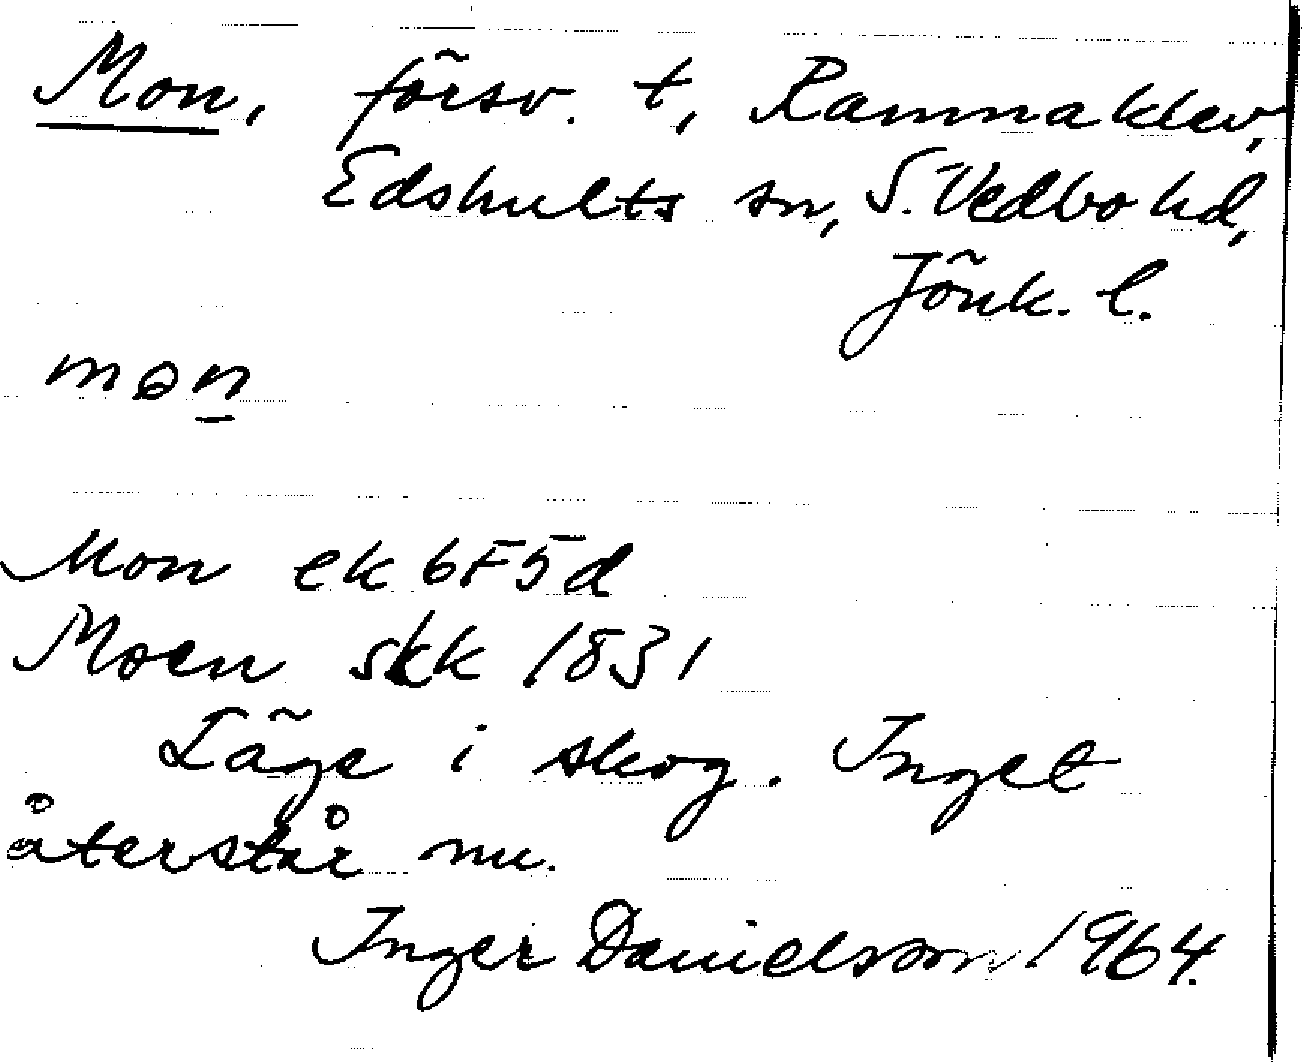 Mon, försv. t, Ramnaklev,
Edshults sn, S. Vedbo hd,
Jönk. l.
mon
Mon ek 6F5d
Moen skk 1831
Läge i skog. Inget
återstår nu.
Inger Danielsson 1964.